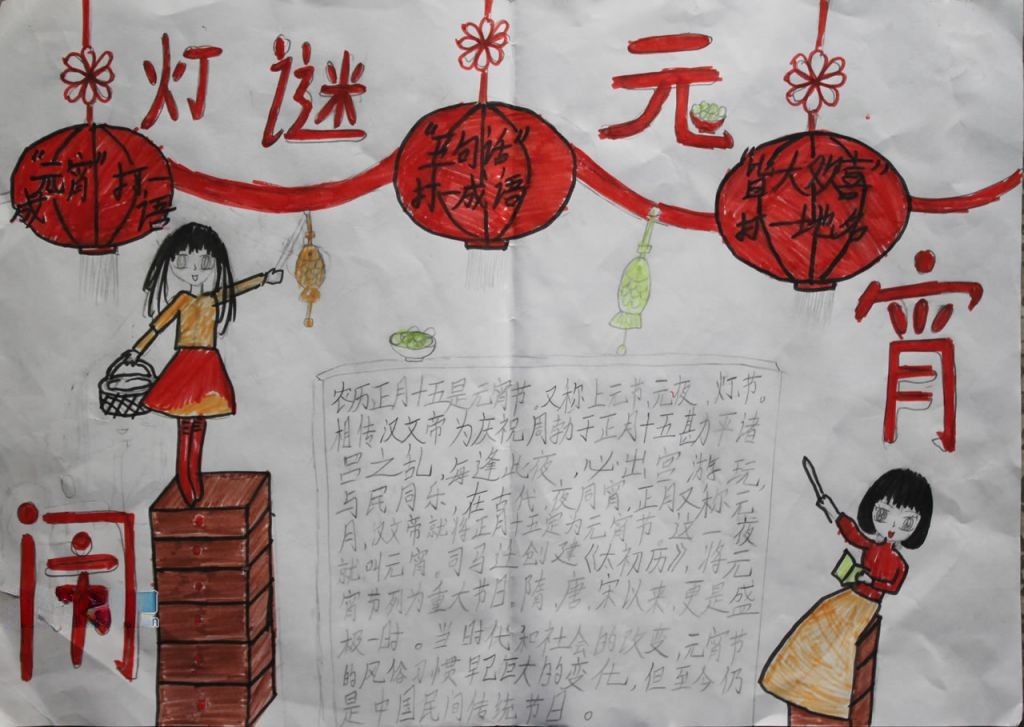 灯谜
元
宵
闹
“元宵”打一
成语
“五句话”
打一成语
“皆大欢喜”
打一地名
农历正月十五是元宵节,又称上元节,元夜、灯节。
相传汉文帝为庆祝周勃于正月十五勘平诸
吕之乱,每逢此夜,必出宫游玩,
与民同乐,在古代,夜同宵,正月又称元
月,汉文帝就将正月十五定为元宵节。这一夜
就叫元宵。司马迁创建《太初历》,将元
宵节列为重大节日。隋,唐,宋以来,更是盛
极一时。当时代和社会的改变,元宵节
的风俗习惯早已巨大的变化,但至今仍
是中国民间传统节日。